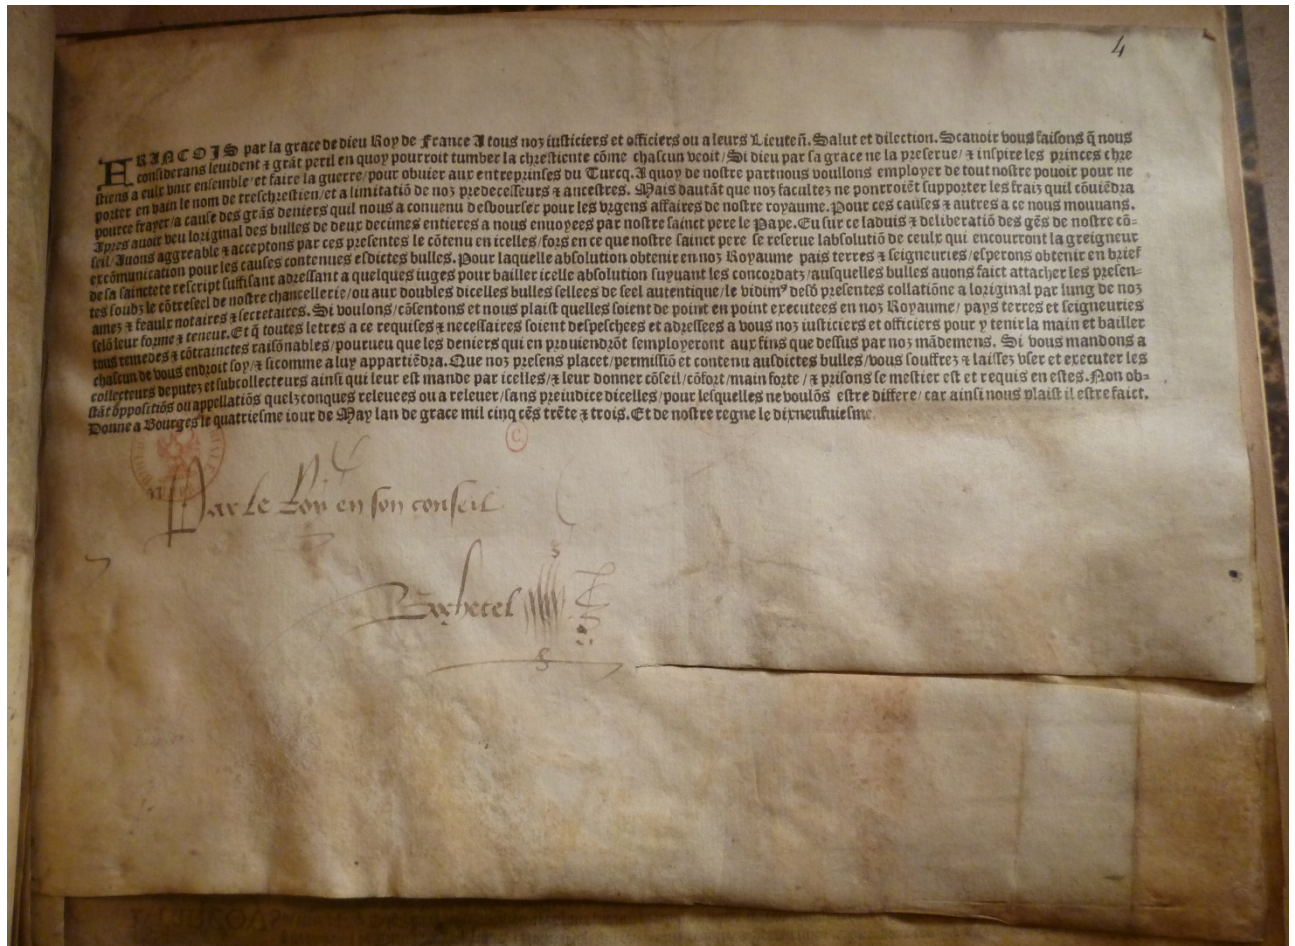 4
FRANCOIS par la grace de dieu Roy de France A tous noz iusticiers et officiers ou a leurs Lieuteñ. Salut et dilection. Scauoir vous faisons q̃ nous
considerans leuident ⁊ grãt peril en quoy pourroit tumber la chrestiente cõme chascun veoit/Si dieu par sa grace ne la preserue/⁊ inspire les princes chre
stiens a eulx vnir ensemble et faire la guerre/pour obuier aux entreprinses du Turcq. A quoy de nostre part nous voullons employer de tout nostre pouoir pour ne
porter en vain le nom de treschrestien/et a limitatiõ de noz predecesseurs ⁊ ancestres. Mais dautãt que noz facultez ne pourroiẽt supporter les fraiz quil cõuiẽdra
pource frayer/a cause des grãs deniers quil nous a conuenu desbourser pour les vrgens affaires de nostre royaume. Pour ces causes ⁊ autres a ce nous mouuans.
Apres auoir veu loriginal des bulles de deux decimes entieres a nous enuoyees par nostre sainct pere le Pape. Eu sur ce laduis ⁊ deliberatiõ des gẽs de nostre cõ=
seil/Auons aggreable ⁊ acceptons par ces presentes le cõtenu en icelles/fors en ce que nostre sainct pere se reserue labsolutiõ de ceulx qui encourront la greigneur
excõmunication pour les causes contenues esdictes bulles. Pour laquelle absolution obtenir en noz Royaume pais terres ⁊ seigneuries/esperons obtenir en brief
de sa sainctete rescript suffisant adressant a quelques iuges pour bailler icelle absolution suyuant les concordatz/ausquelles bulles auons faict attacher les presen=
tes soubz le cõtreseel de nostre chancellerie/ou aux doubles dicelles bulles sellees de seel autentique/le vidimꝰ desd̃ presentes collatiõne a loriginal par lung de noz
amez ⁊ feaulx notaires ⁊ secretaires. Si voulons/cõsentons et nous plaist quelles soient de point en point executees en noz Royaume/pays terres et seigneuries
selõ leur forme ⁊ teneur. Et q̃ toutes letres a ce requises ⁊ necessaires soient despeschees et adressees a vous noz iusticiers et officiers pour y tenir la main et bailler
tous remedes ⁊ cõtrainctes raisõnables/pourueu que les deniers qui en prouiendrõt semployeront aux fins que dessus par noz mãdemens. Si vous mandons a
chascun de vous endroit soy/⁊ si comme a luy appartiẽdra. Que noz presens placet/permissiõ et contenu ausdictes bulles/vous souffrez ⁊ laissez vser et executer les
collecteurs deputez et subcollecteurs ainsi qui leur est mande par icelles/⁊ leur donner cõseil/cõfort/main forte/⁊ prisons se mestier est et requis en estes. Non ob=
stãt oppositiõs ou appellatiõs quelzconques releuees ou a releuer/sans preiudice dicelles/pour lesquelles ne voulõs estre differe/car ainsi nous plaist il estre faict.
Donne a Bourges le quatriesme iour de May lan de grace mil cinq cẽs trẽte ⁊ trois. Et de nostre regne le dixneufuiesme.
C
Par le Roy en son conseil
Bochetel